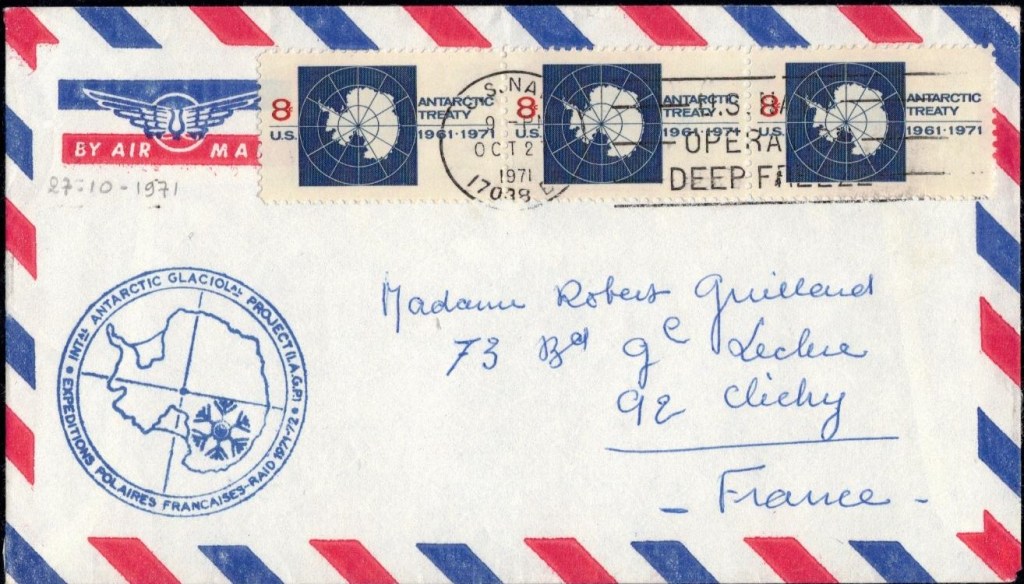 BY AIR MA
27-10-1971
8¢
U.S.
ANTARCTIC
TREATY
1961·1971
8¢
U.S.
ANTARCTIC
TREATY
1961·1971
8¢
U.S.
ANTARCTIC
TREATY
1961·1971
S.NA
OCT 2
1971
17038
U.S. NA
OPERA
DEEP FREEZE
INTAL ANTARCTIC GLACIOLAL PROJECT (I.A.G.P)
EXPEDITIONS POLAIRES FRANCAISES-RAID 1971-72
Madame Robert Guillard
73 Bd Gl Leclerc
92 Clichy
- France -